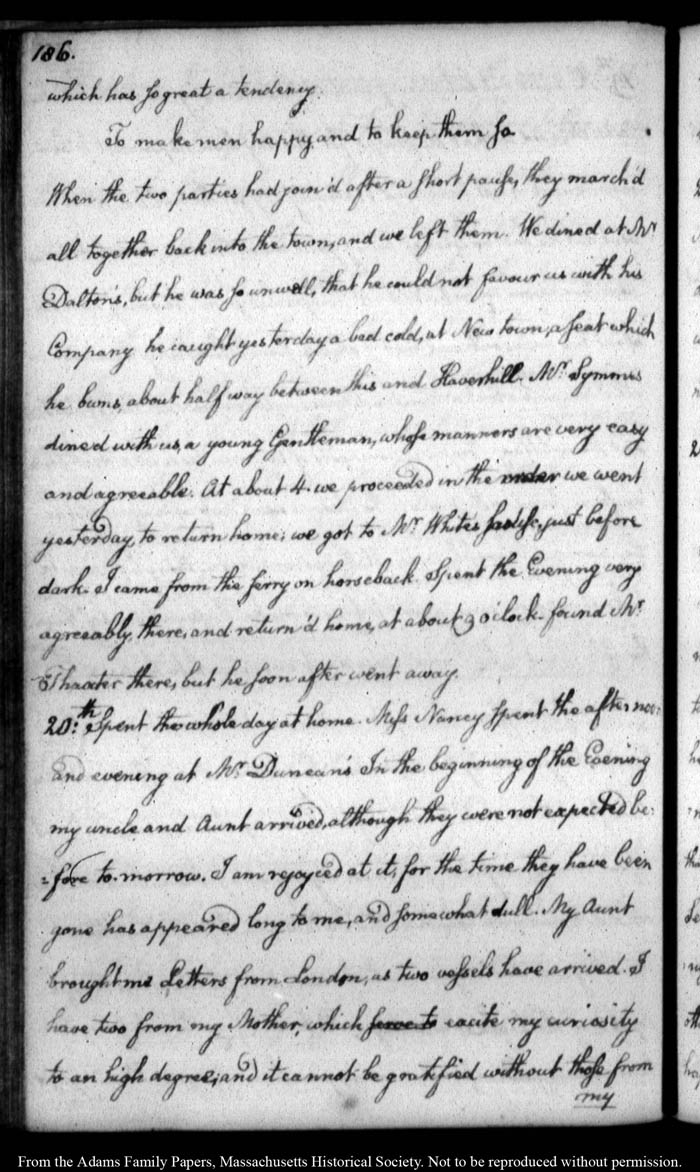 186.
which has so great a tendency.
To make men happy, and to keep them so
When the two parties had join'd after a short pause, they march'd
all together back into the town, and we left them. We dined at Mr
Dalton's, but he was so unwell, that he could not favour us with his
Company he caught yesterday a bad cold, at Newtown, a seat which
he owns, about half way between this and Haverhill. Mr. Symmes
dined with us, a young Gentleman, whose manners are very easy
and agreeable. At about 4. we proceeded in the order we went
yesterday, to return home; we got to Mr. White's house, just before
dark. I came from the ferry on horseback. Spent the Evening very
agreeably, there, and return'd home, at about 9 o'clock. found Mr.
Thaxter there, but he soon after went away.
20.th Spent the whole day at home. Miss Nancy spent the afternoo:
and evening at Mr. Duncan's In the beginning of the Evening
my uncle and Aunt arrived, although they were not expected be-
=fore to-morrow. I am rejoyced at it, for the time they have been
gone has appeared long to me, and somewhat dull. My Aunt
brought me Letters from London, as two vessels have arrived. I
have two from my Mother, which serve to excite my curiosity
to an high degree; and it cannot be gratified without those from
my
From the Adams Family Papers, Massachusetts Historical Society. Not to be reproduced without permission.